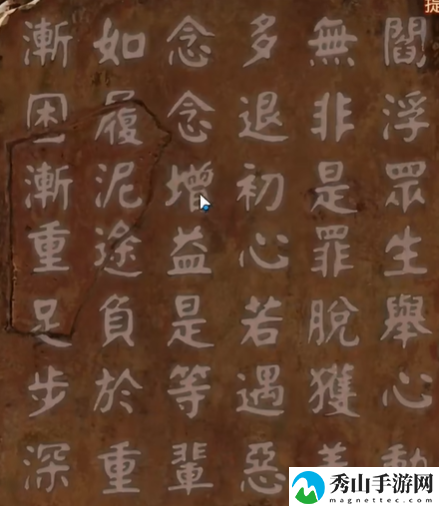 閻浮眾生舉心動
無非是罪脫獲善
多退初心若遇惡
念念增益是等輩
如履泥途負於重
漸困漸重足步深
提
秀山手游网
magnattec.com